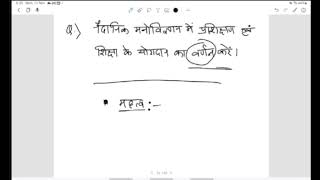 Q) नैदानिक मनोविज्ञान में प्रशिक्षण एवं
शिक्षा के योगदान का वर्णन करें।
• महत्व :-